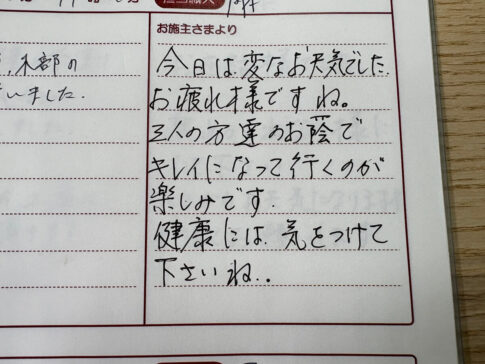 お施主さまより
今日は変なお天気でした
お疲れ様ですね。
三人の方達のお蔭で
キレイになって行くのが
楽しみです.
健康には 気をつけて
下さいね..
木部の
いました.